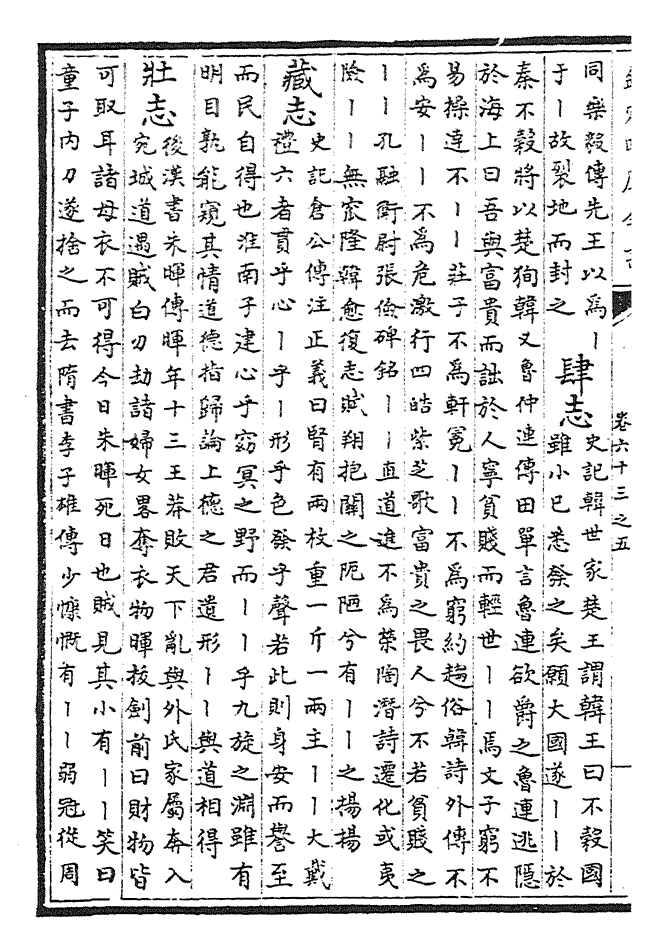 卷六十三之五
同樂毅傳先王以為丨
于丨故裂地而封之
肆志
史記韓世家楚王謂韓王曰不穀國
雖小已悉發之矣願大國遂丨丨於
秦不穀將以楚狥韓又魯仲連傳田單言魯連欲爵之魯連逃隠
於海上曰吾與富貴而詘於人寧貧賤而輕世丨丨焉文子窮不
易操達不丨丨莊子不為軒冕丨丨不為窮約趨俗韓詩外傳不
為安丨丨不為危激行四皓紫芝歌富貴之畏人兮不若貧賤之
丨丨孔融衛尉張儉碑銘丨丨直道進不為榮陶潛詩遷化或夷
險丨丨無窊隆韓愈復志賦翔抱關之阨陋兮有丨丨之揚揚
藏志
史記倉公傳注正義曰腎有兩枚重一斤一兩主丨丨大戴
禮六者貫乎心丨乎丨形乎色發乎聲若此則身安而譽至
而民自得也淮南子建心乎窈冥之野而丨丨乎九旋之淵雖有
明目孰能窺其情道德指歸論上德之君遺形丨丨與道相得
壯志
後漢書朱暉傳暉年十三王莽敗天下亂與外氏家屬奔入
宛城道遇賊白刃劫諸婦女畧奪衣物暉拔劍前曰財物皆
可取耳諸母衣不可得今日朱暉死日也賊見其小有丨丨笑曰
童子内刀遂捨之而去隋書李子雄傳少慷慨有丨丨弱冠從周